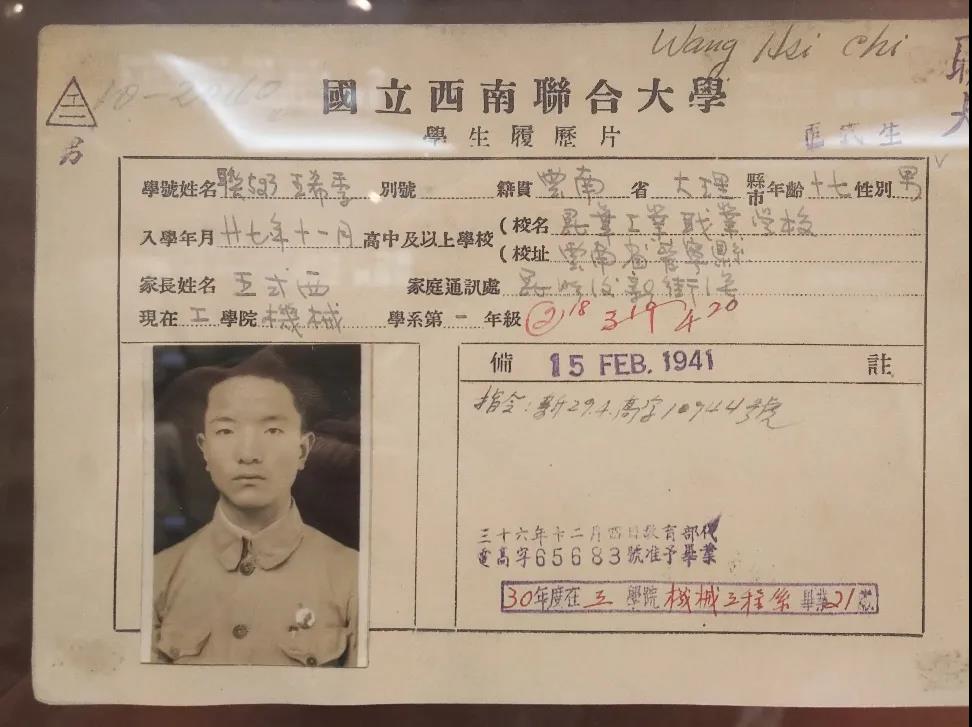 Wang Hsi Chi
工
國立西南聯合大學
學生履歷片
學號姓名 聯523 王希季 別號 籍貫 雲南 省 大理 縣市 年齡 十七 性別 男
入學年月 廿七年十一月 高中及以上學校 (校名 昆華工業職業學校
(校址 雲南省晉寧縣
家長姓名 王式西 家庭通訊處 昆明 街1号
現在 工 學院 機械 學系第 一 年級 ② 18 3 19 4 20
備 15 FEB. 1941 註
指令: 29.4. 高字10944号
三十六年十二月四日教育部代
電高字65683號准予畢業
30年度在 工 學院 機械工程系 畢業21